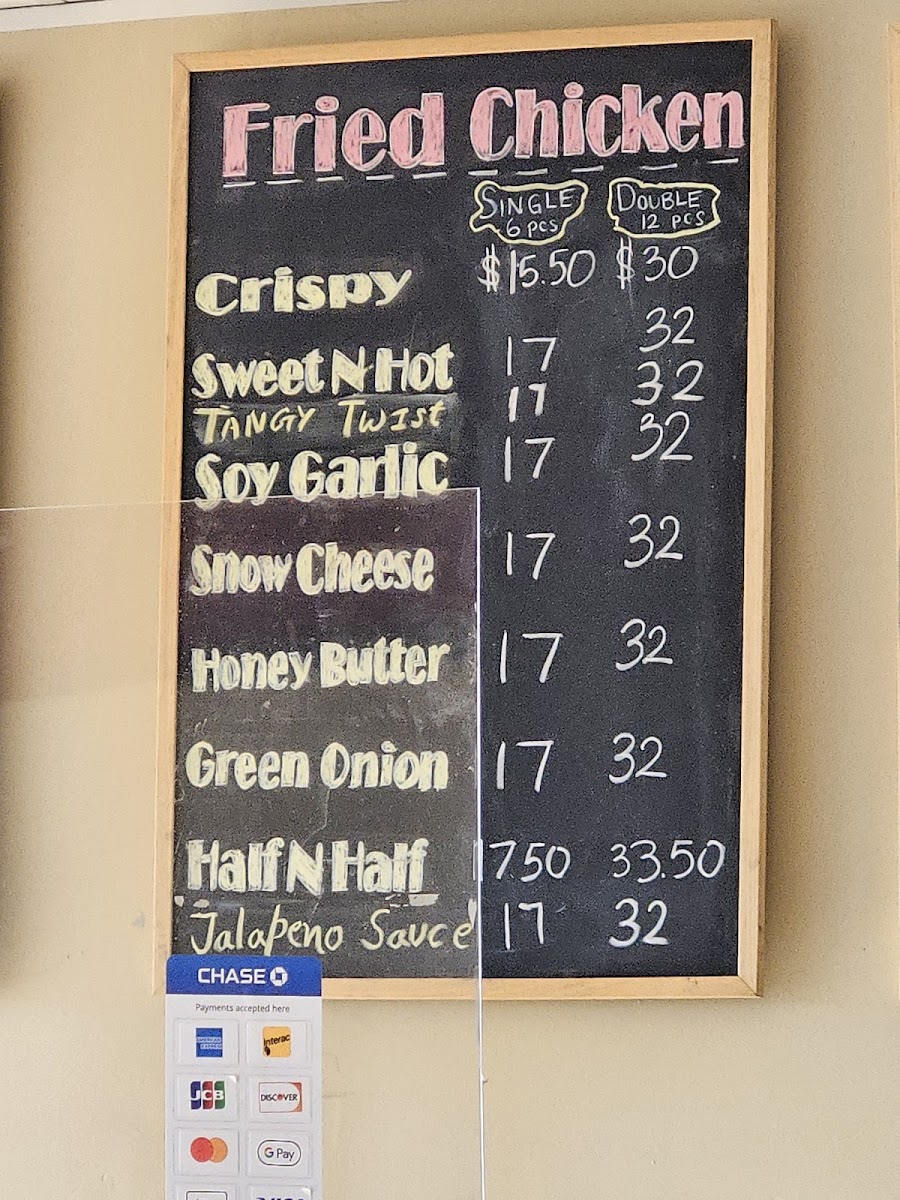 Fried Chicken
SINGLE DOUBLE
6 PCS 12 PCS
Crispy $15.50 $30
Sweet N Hot 17 32
TANGY TWIST 17 32
Soy Garlic 17 32
Snow Cheese 17 32
Honey Butter 17 32
Green Onion 17 32
Half N Half 17.50 33.50
Jalapeno Sauce 17 32
CHASE
Payments accepted here
AMERICAN EXPRESS Interac
JCB DISCOVER
G Pay
VISA